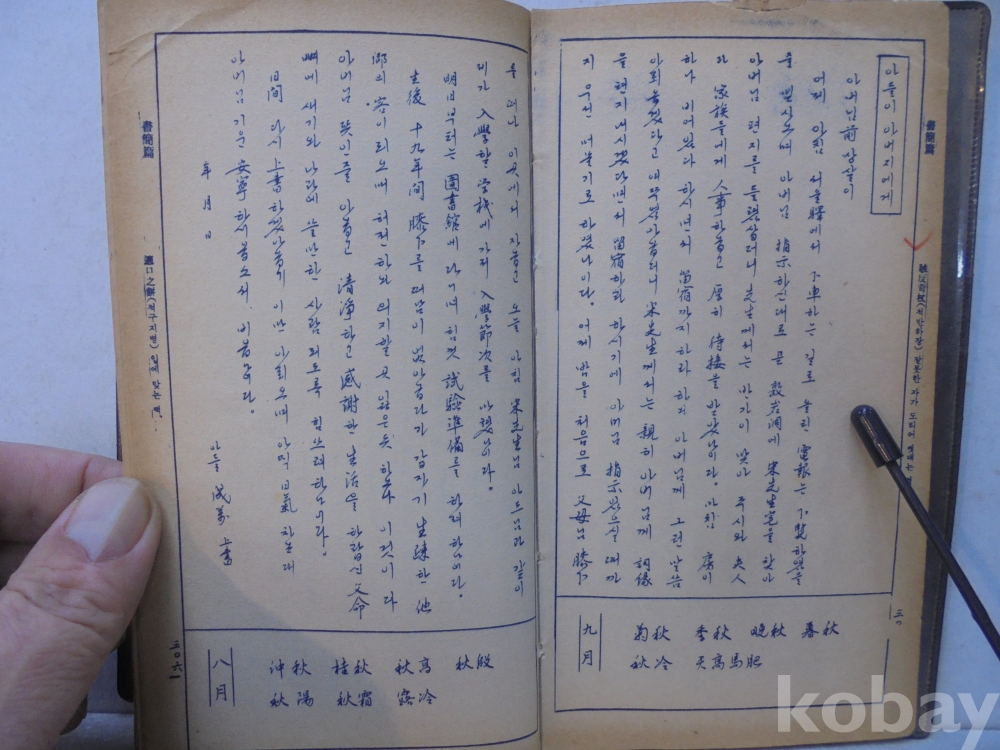 書簡篇
아들이 아버지에게
아버님前 상살이
어제 아침 서울驛에서 下車하는 길로 올린 電報는 下覽하였을
줄 믿사오며 아버님 指示하신대로 곧 敦岩洞에 宋先生宅을 찾아
아버님 편지를 드렸삽더니 先生께서는 반가이 맞아 주시와 夫人
과 家族들에게 人事하옵고 厚히 待接을 받았나이다. 마침 房이
하나 비어있다 하시면서 留宿까지 하라 하와 아버님께 그런 말씀
아뢰옵겠다고 여쭈었아옵더니 宋先生께서는 親히 아버님께 詞緣
을 편지내시겠다면서 留宿하라 하시기에 아버님 指示있으실 때까
지 우선 머물기로 하였나이다. 어제 밤을 처음으로 父母님 膝下
賊反荷杖(적반하장) 잘못한 자가 도리어
暮秋 晩秋 季秋 菊秋
天高馬肥 秋冷
九月
를 떠난 이곳에서 자옵고 오늘 아침 宋先生님 아드님과 같이
제가 入學할 学校에 가서 入學節次를 마쳤나이다.
明日부터는 圖書館에 다니며 힘껏 試驗準備를 하려 하나이다.
生後 十九年間 膝下를 떠남이 없아옵다가 갑자기 生疎한 他
鄕의 客이 되오매 허전하와 의지할 곳 잃은듯 하오나 이것이 다
아버님 뜻인줄 아옵고 清浄하고 感謝한 生活을 하랍신 父命
뼈에 새기와 나라에 쓸만한 사람 되도록 힘쓰려 하나이다.
日間 다시 上書하겠아옵기 이만 아뢰오며 아직 日氣 차온데
아버님 기운 安寧하시옵소서. 비옵나이다.
年 月 日
아들 成萬 上書
書簡篇
適口之餠(적구지병) 입에 맞는 떡.
三○六
殷秋 高秋 桂秋 仲秋
冷露 秋霜 秋陽 秋
八月
kobay